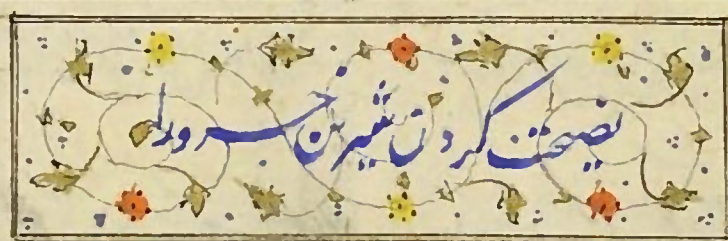 نصیحت کردن شیرین خسرو را